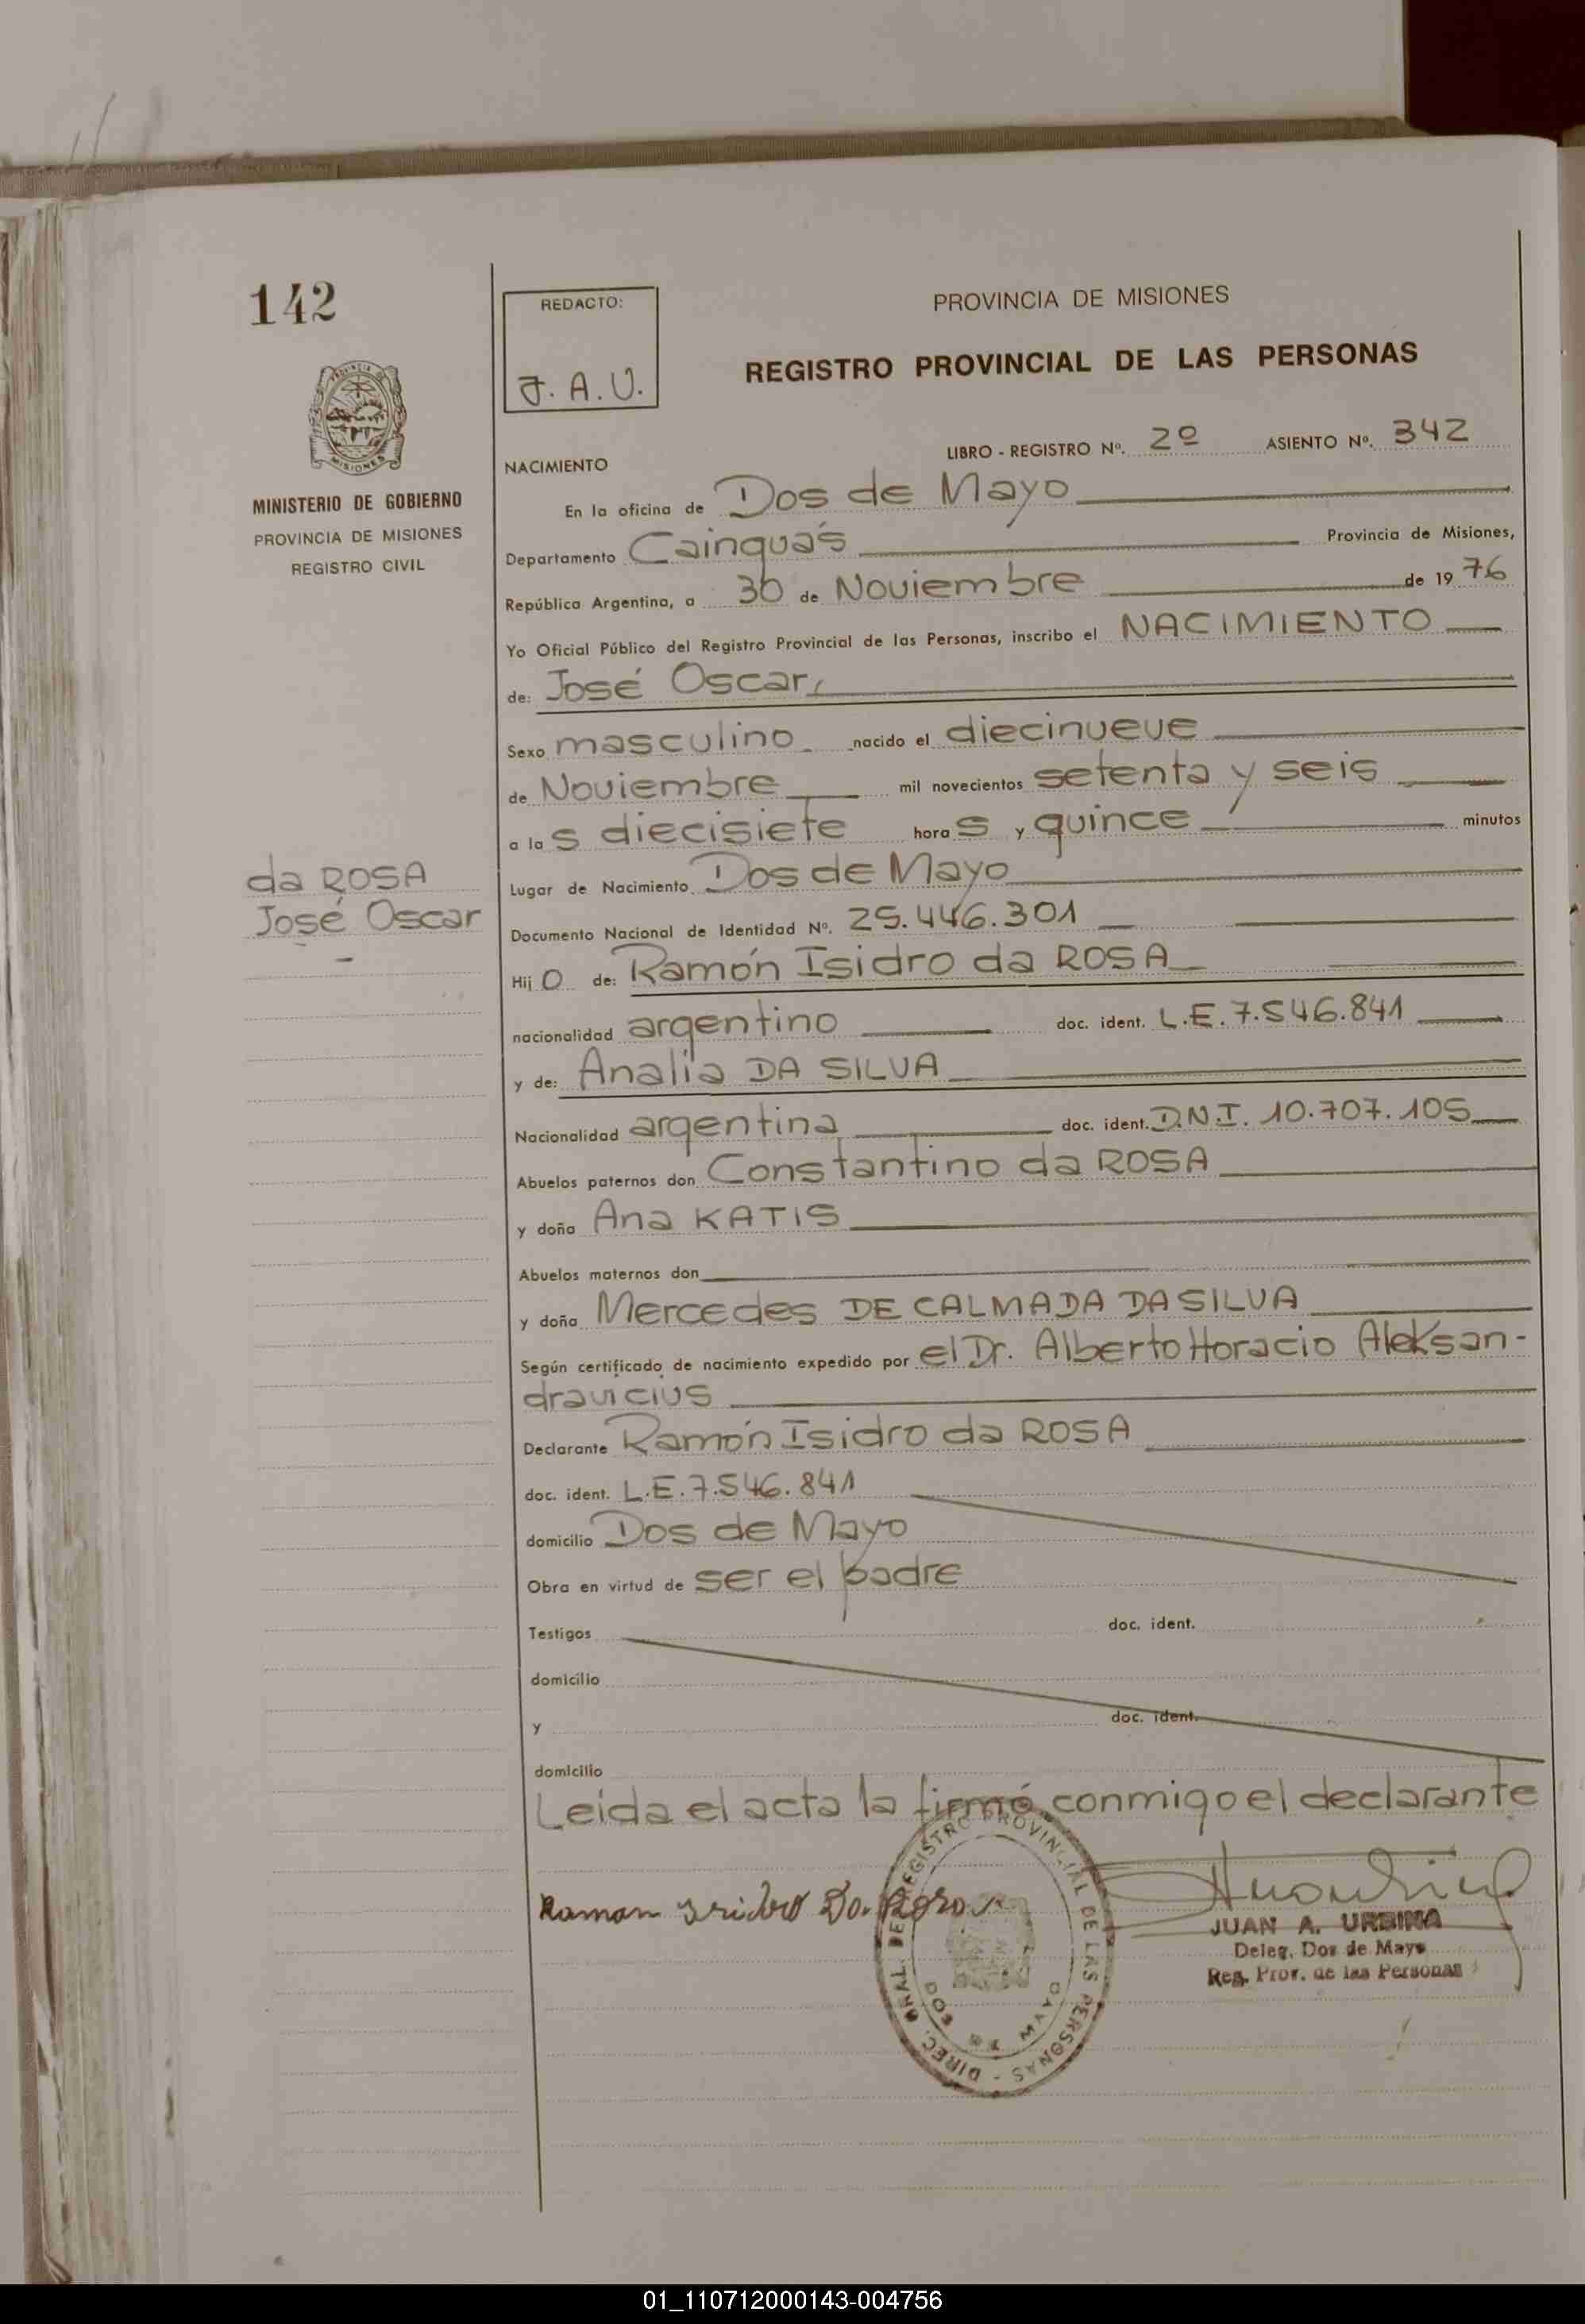 142
REDACTO:
J. A. U.
PROVINCIA DE MISIONES
REGISTRO PROVINCIAL DE LAS PERSONAS
PROVINCIA DE MISIONES
MINISTERIO DE GOBIERNO
PROVINCIA DE MISIONES
REGISTRO CIVIL
NACIMIENTO
LIBRO - REGISTRO Nº. 2º ASIENTO Nº. 342
En la oficina de Dos de Mayo
Departamento Cainguás Provincia de Misiones,
República Argentina, a 30 de Noviembre de 19 76
Yo Oficial Público del Registro Provincial de las Personas, inscribo el NACIMIENTO
de: José Oscar,
Sexo masculino nacido el diecinueve
de Noviembre mil novecientos setenta y seis
a la s diecisiete hora s y quince minutos
da ROSA
José Oscar
Lugar de Nacimiento Dos de Mayo
Documento Nacional de Identidad Nº. 25.446.301
Hij o de: Ramón Isidro da ROSA
nacionalidad argentino doc. ident. L.E. 7.546.841
y de: Analía DA SILVA
Nacionalidad argentina doc. ident. D.N.I. 10.707.105
Abuelos paternos don Constantino da ROSA
y doña Ana KATIS
Abuelos maternos don
y doña Mercedes DE CALMADA DA SILVA
Según certificado de nacimiento expedido por el Dr. Alberto Horacio Aleksan-
dravicius
Declarante Ramón Isidro da ROSA
doc. ident. L.E. 7.546.841
domicilio Dos de Mayo
Obra en virtud de ser el padre
Testigos doc. ident.
domicilio
y doc. ident.
domicilio
Leída el acta la firmó conmigo el declarante
Ramon Isidro Da Rosa
DIREC. GRAL. DEL REGISTRO PROVINCIAL DE LAS PERSONAS -
DOS DE MAYO
JUAN A. URBINA
Deleg. Dos de Mayo
Reg. Prov. de las Personas
01_110712000143-004756